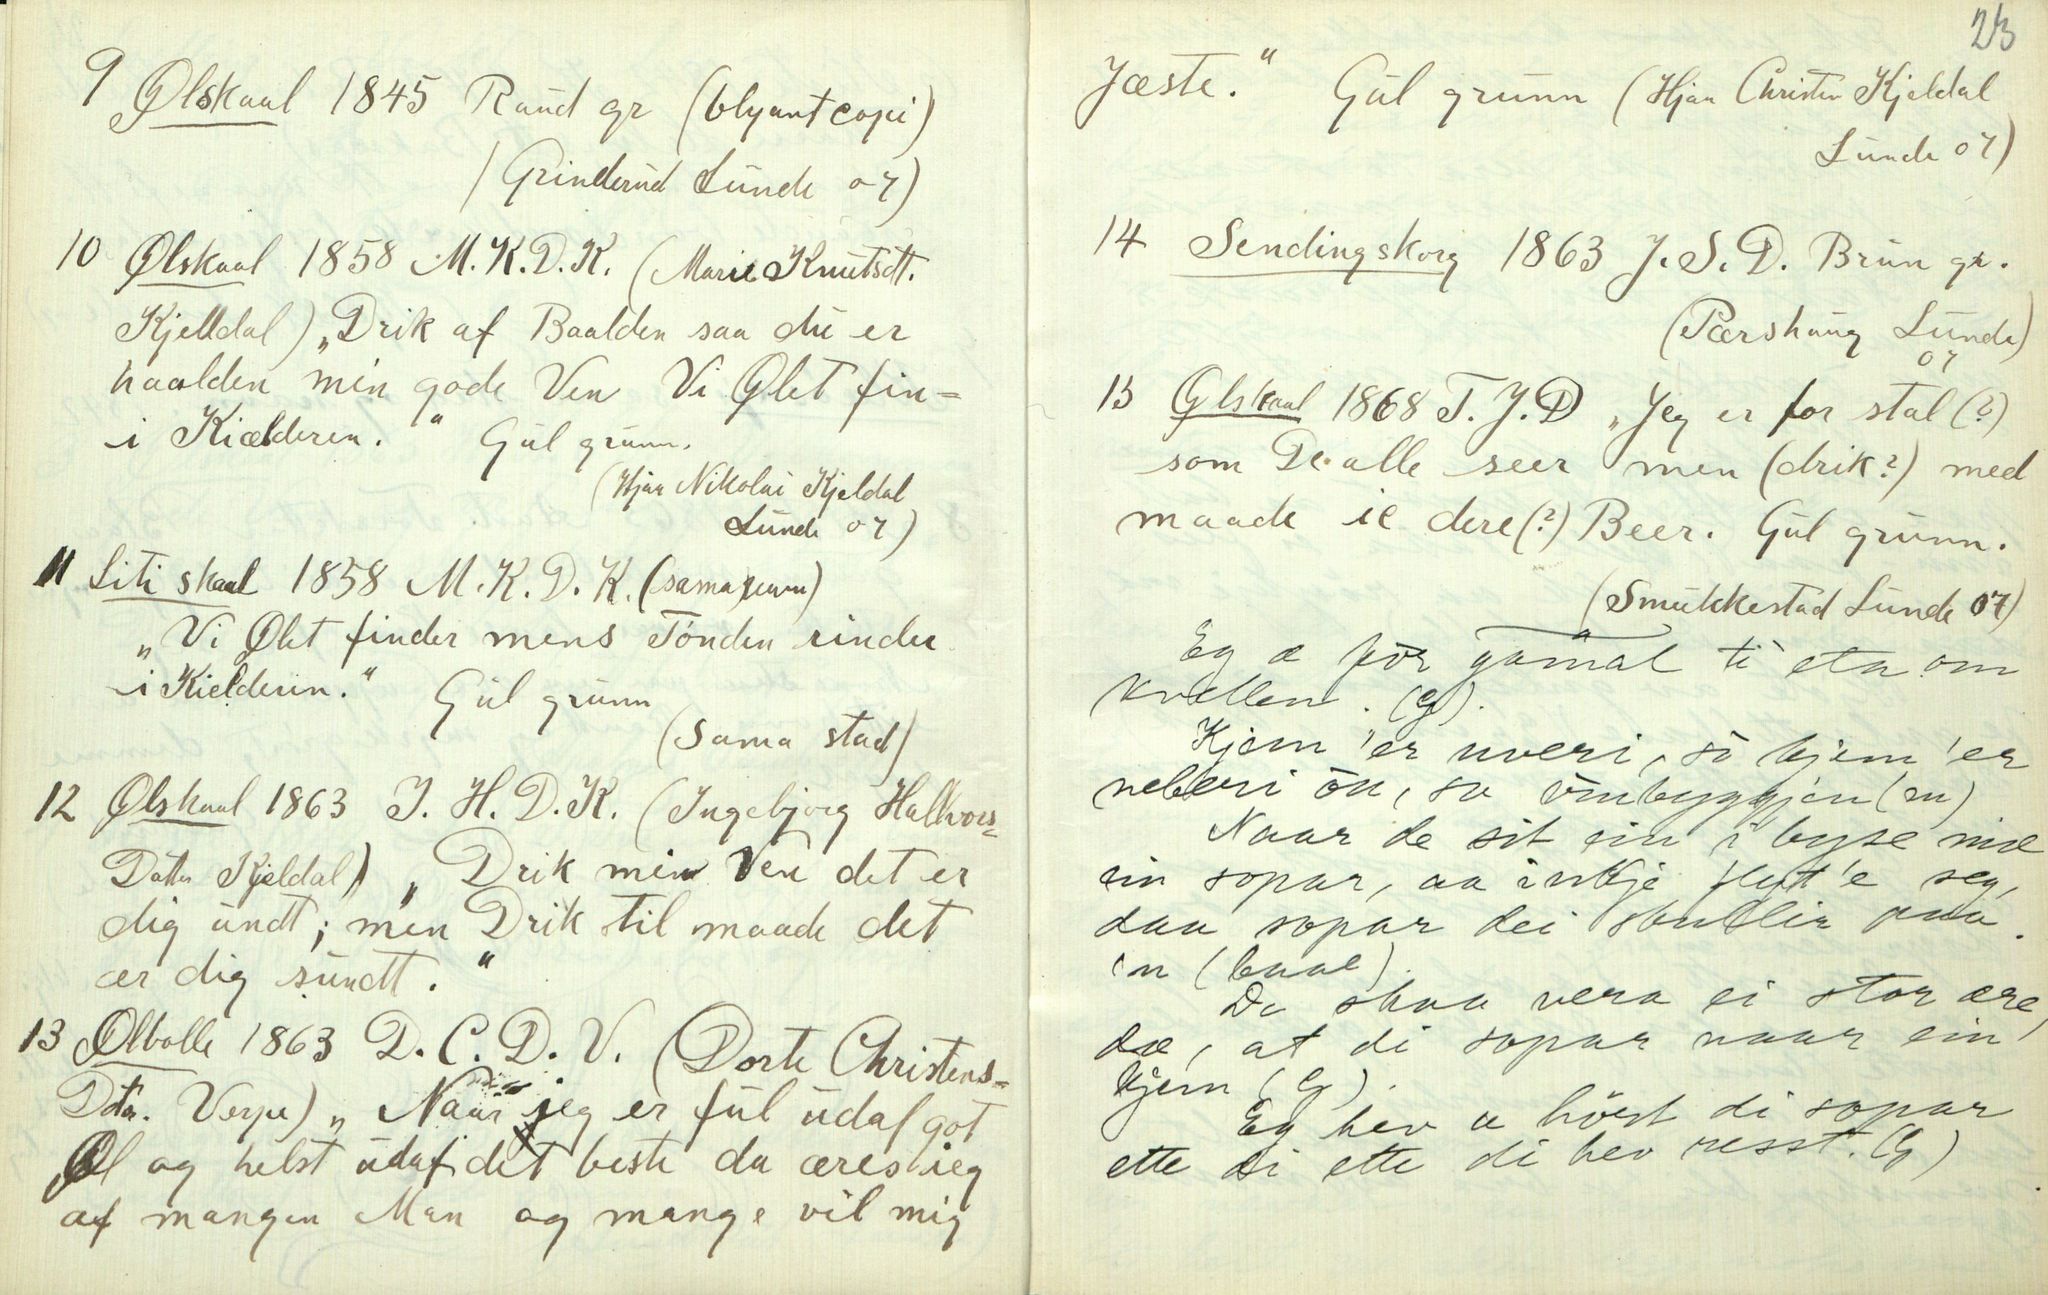 9 Ølskaal 1845 Raud gr (blyantcopi)
(Grinderud Lunde 07)
10 Ølskaal 1858 M.K.D.K. (Marie Knutsdt.
Kjelldal) „Drik af Baalden saa du er
haalden min gode Ven Vi Ølet fin=
i Kiælderen." Gul grunn.
(Hjaa Nikolai Kjeldal
Lunde 07)
11 Liti skaal 1858 M.K.D.K. (sama
„Vi Ølet finder mens Tónden rinder
i Kielderen." Gul grunn
(Sama stad)
12 Ølskaal 1863 I.H.D.K. (Ingebjorg Halvors=
Datter Kjeldal) „Drik min Ven det er
dig undt; men Drik til maade det
ær dig sundt."
13 Ølbolle 1863 D.C.D.V. (Dorte Christens=
Dotr. Verpe) „Naar jeg er ful udaf got
Øl og helst udaf det beste da æres ieg
af mangen Man og mange vil mig
23
Jæste." Gul grunn (Hjaa Christen Kjeldal
Lunde 07)
14 Sendingskorg 1863 J.S.D. Brun gr.
(Pærshaug Lunde)
07
15 Ølskaal 1868 T.J.D „Jeg er for stal (?)
som De alle seer men (drik?) med
maade ie dere (?) Beer. Gul grunn.
(Smukkestad Lunde 07)
Eg æ för gamal ti eta om
kvellen.
Kjem 'er uveri, so kjem 'er
neberi
Naar de sit ein i byse mæ
ein sopar, aa inkje flyt'e seg,
daa sopar dei skulli paa
'n
Da skaa vera ei stor ære
dæ, at di sopar naar ein
kjem
Eg hev a höyrt di sopar
ette di ette di hev resst.